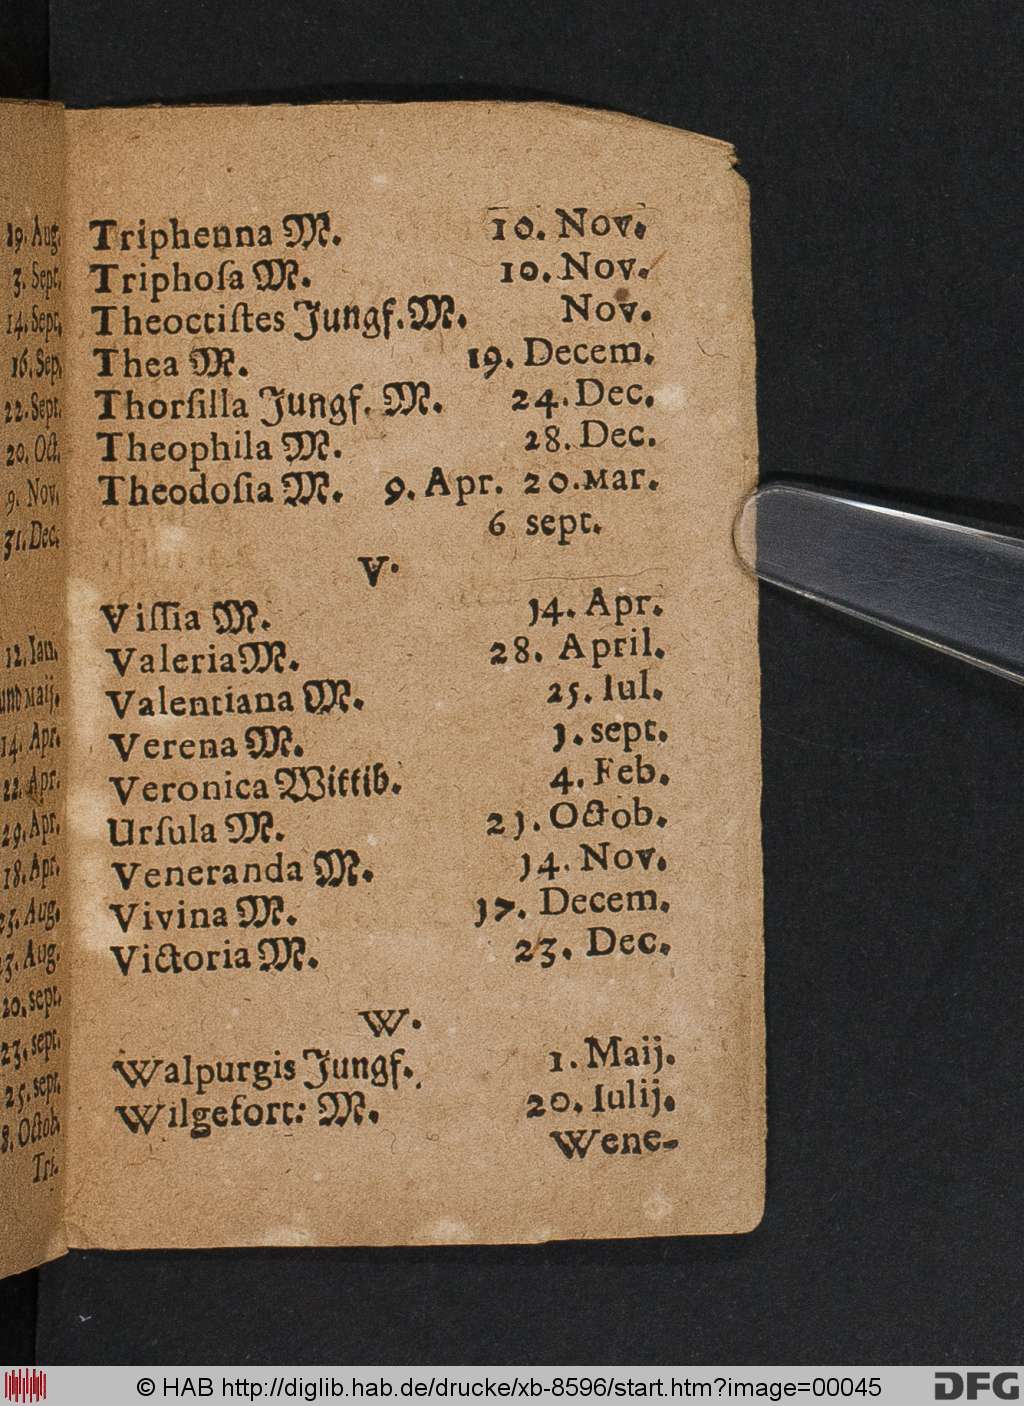 19. Aug.
3. Sept.
14. Sept.
16. Sep.
22. Sept.
20. Oct.
9. Nov.
31. Dec.
12. Ian.
und Maij.
14. Apr.
22. Apr.
29. Apr.
18. Apr.
23. Aug.
20. sept.
23. sept.
25. sept.
8. Octob.
Tri-
Triphenna M. 10. Nov.
Triphoſa M. 10. Nov.
Theoctiſtes Jungf. M. Nov.
Thea M. 19. Decem.
Thorſilla Jungf. M. 24. Dec.
Theophila M. 28. Dec.
Theodoſia M. 9. Apr. 20. Mar.
6 sept.
V.
Viſſia M. 14. Apr.
Valeria M. 28. April.
Valentiana M. 25. Iul.
Verena M. 1. sept.
Veronica Wittib. 4. Feb.
Urſula M. 21. Octob.
Veneranda M. 14. Nov.
Vivina M. 17. Decem.
Victoria M. 23. Dec.
W.
Walpurgis Jungf. 1. Maij.
Wilgefort: M. 20. Iulij.
Wene-
© HAB http://diglib.hab.de/drucke/xb-8596/start.htm?image=00045
DFG